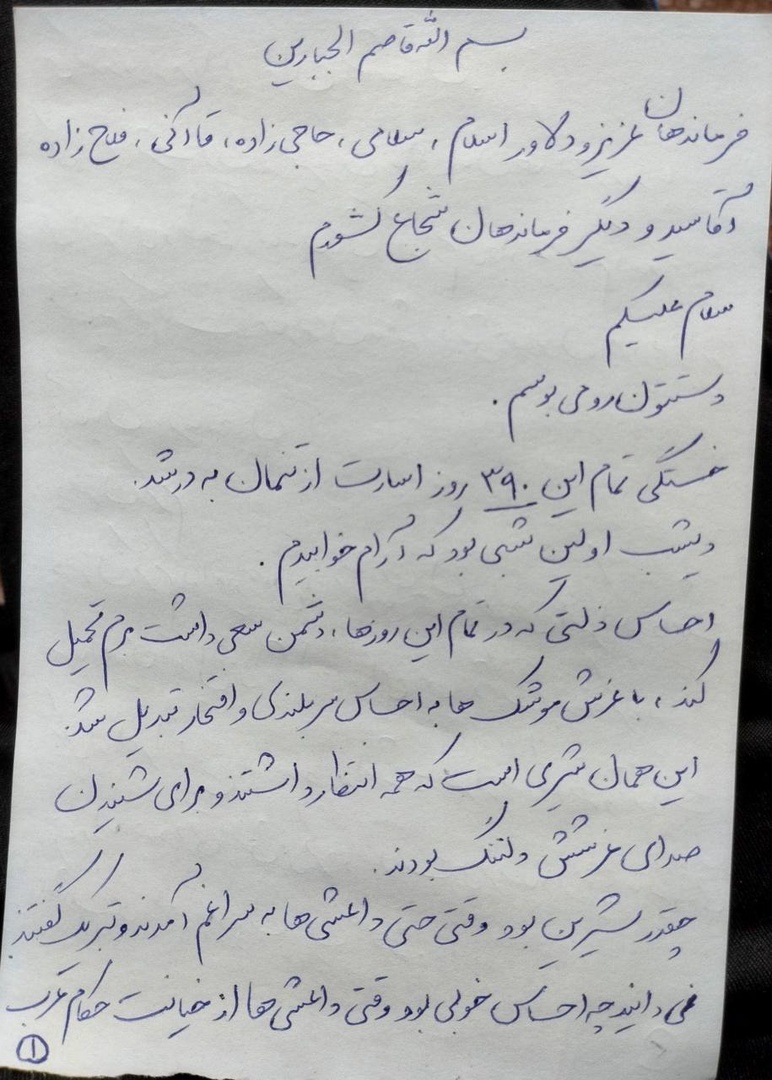 بسم الله قاصم الجبارین
فرماندهان عزیز و دلاور اسلام ، سلامی ، حاجی زاده ، قاآنی ، فلاح زاده
آقاسید و دیگر فرماندهان شجاع کشورم
سلام علیکم
دستتون رو می بوسم .
خستگی تمام این ۳۹۰ روز اسارت از تنمان به در شد .
دیشب اولین شبی بود که آرام خوابیدم .
احساس ذلتی که در تمام این روزها ، دشمن سعی داشت برم تحمیل
کند ، با غرش موشک ها به احساس سربلندی و افتخار تبدیل شد .
این همان شیری است که همه انتظار داشتند و برای شنیدن
صدای غرشش دلتنگ بودند .
چقدر شیرین بود وقتی حتی داعشی ها به سراغم آمدند و تبریک گفتند
نمی دانید چه احساس خوبی بود وقتی داعشی ها از خیانت حکام عرب
۱